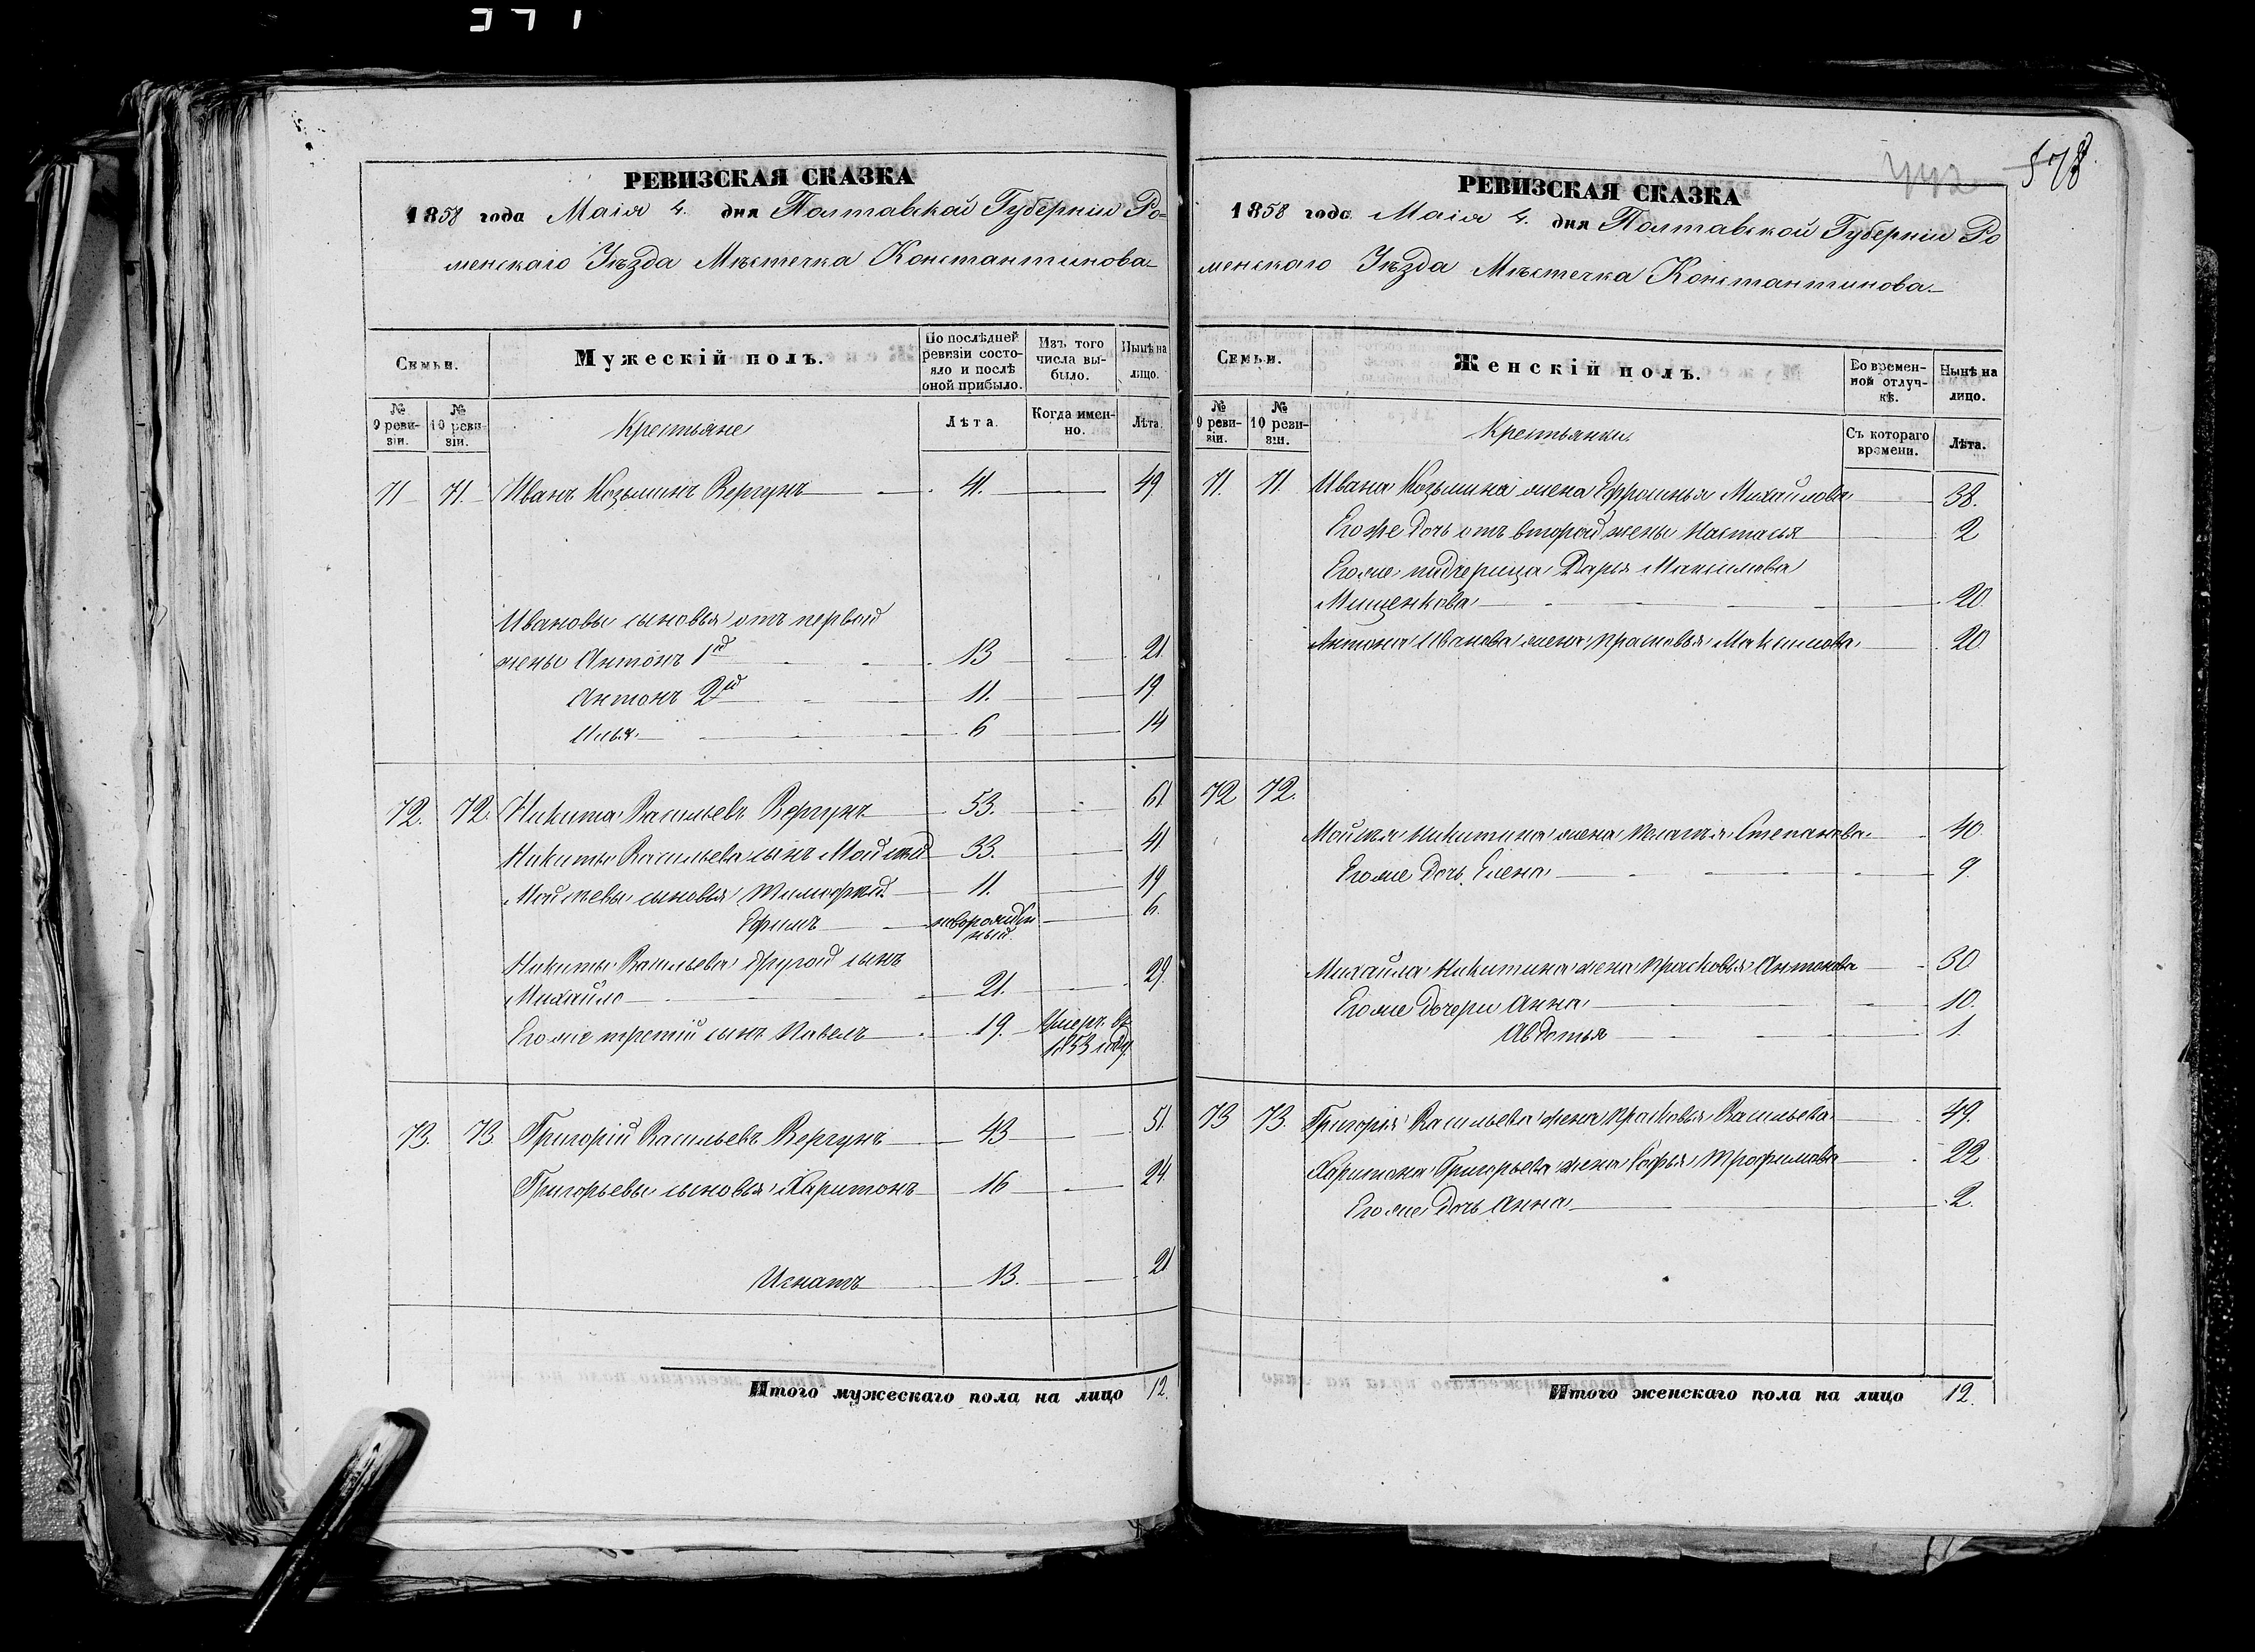 371
РЕВИЗСКАЯ СКАЗКА
1858 года Маія 4. дня Полтавской Губерніи Ро=
менскаго Уѣзда Мѣстечка Константинова
Семьи.
Мужескій полъ.
По послѣдней ревизіи состояло и послѣ оной прибыло.
Изъ того числа выбыло.
Нынѣ на лицо.
№ 9 ревизіи.
№ 10 ревизіи.
Крестьяне
Лѣта.
Когда именно.
Лѣта.
71 71. Иванъ Козьминъ Вергунъ 41. 49
Ивановы сыновья отъ первой
жены Антонъ 1й 13 21.
Антонъ 2й 11. 19.
Илья 6 14
72. 72. Никита Васильевъ Вергунъ 53. 61
Никиты Васильева сынъ Мойсѣй 33. 41
Мойсѣевы сыновья Тимофей 11. 19
Ефимъ новорожден 6.
ный
Никиты Васильева другой сынъ
Михайло 21. 29.
Его же третій сынъ Павелъ 19. Умеръ въ
1853 году
73. 73 Григорій Васильевъ Вергунъ 43 51.
Григорьевы сыновья Харитонъ 16 24.
Игнатъ 13. 21
Итого мужескаго пола на лицо 12.
578
РЕВИЗСКАЯ СКАЗКА
1858 года Маія 4. дня Полтавской Губерніи Ро
менскаго Уѣзда Мѣстечка Константинова
Семьи.
Женскій полъ.
Во временной отлучкѣ.
Нынѣ на лицо.
№ 9 ревизіи.
№ 10 ревизіи.
Крестьянки
Съ котораго времени.
Лѣта.
71. 71. Ивана Козьмина жена Ефросинья Михайлова 38.
Его же дочь отъ второй жены Настасья 2
Его же падчерица Дарья Максимова
Мищенкова 20.
Антона Иванова жена Прасковья Максимова 20
72 72.
Мойсѣя Никитина жена Пелагея Степанова 40
Его же дочь Елена 9.
Михайла Никитина жена Прасковья Антонова 30
Его же дочери Анна 10.
Авдотья 1.
73 73. Григорія Васильева жена Прасковья Васильева 49.
Харитона Григорьева жена Софья Трофимова 22
Его же дочь Анна 2.
Итого женскаго пола на лицо 12.